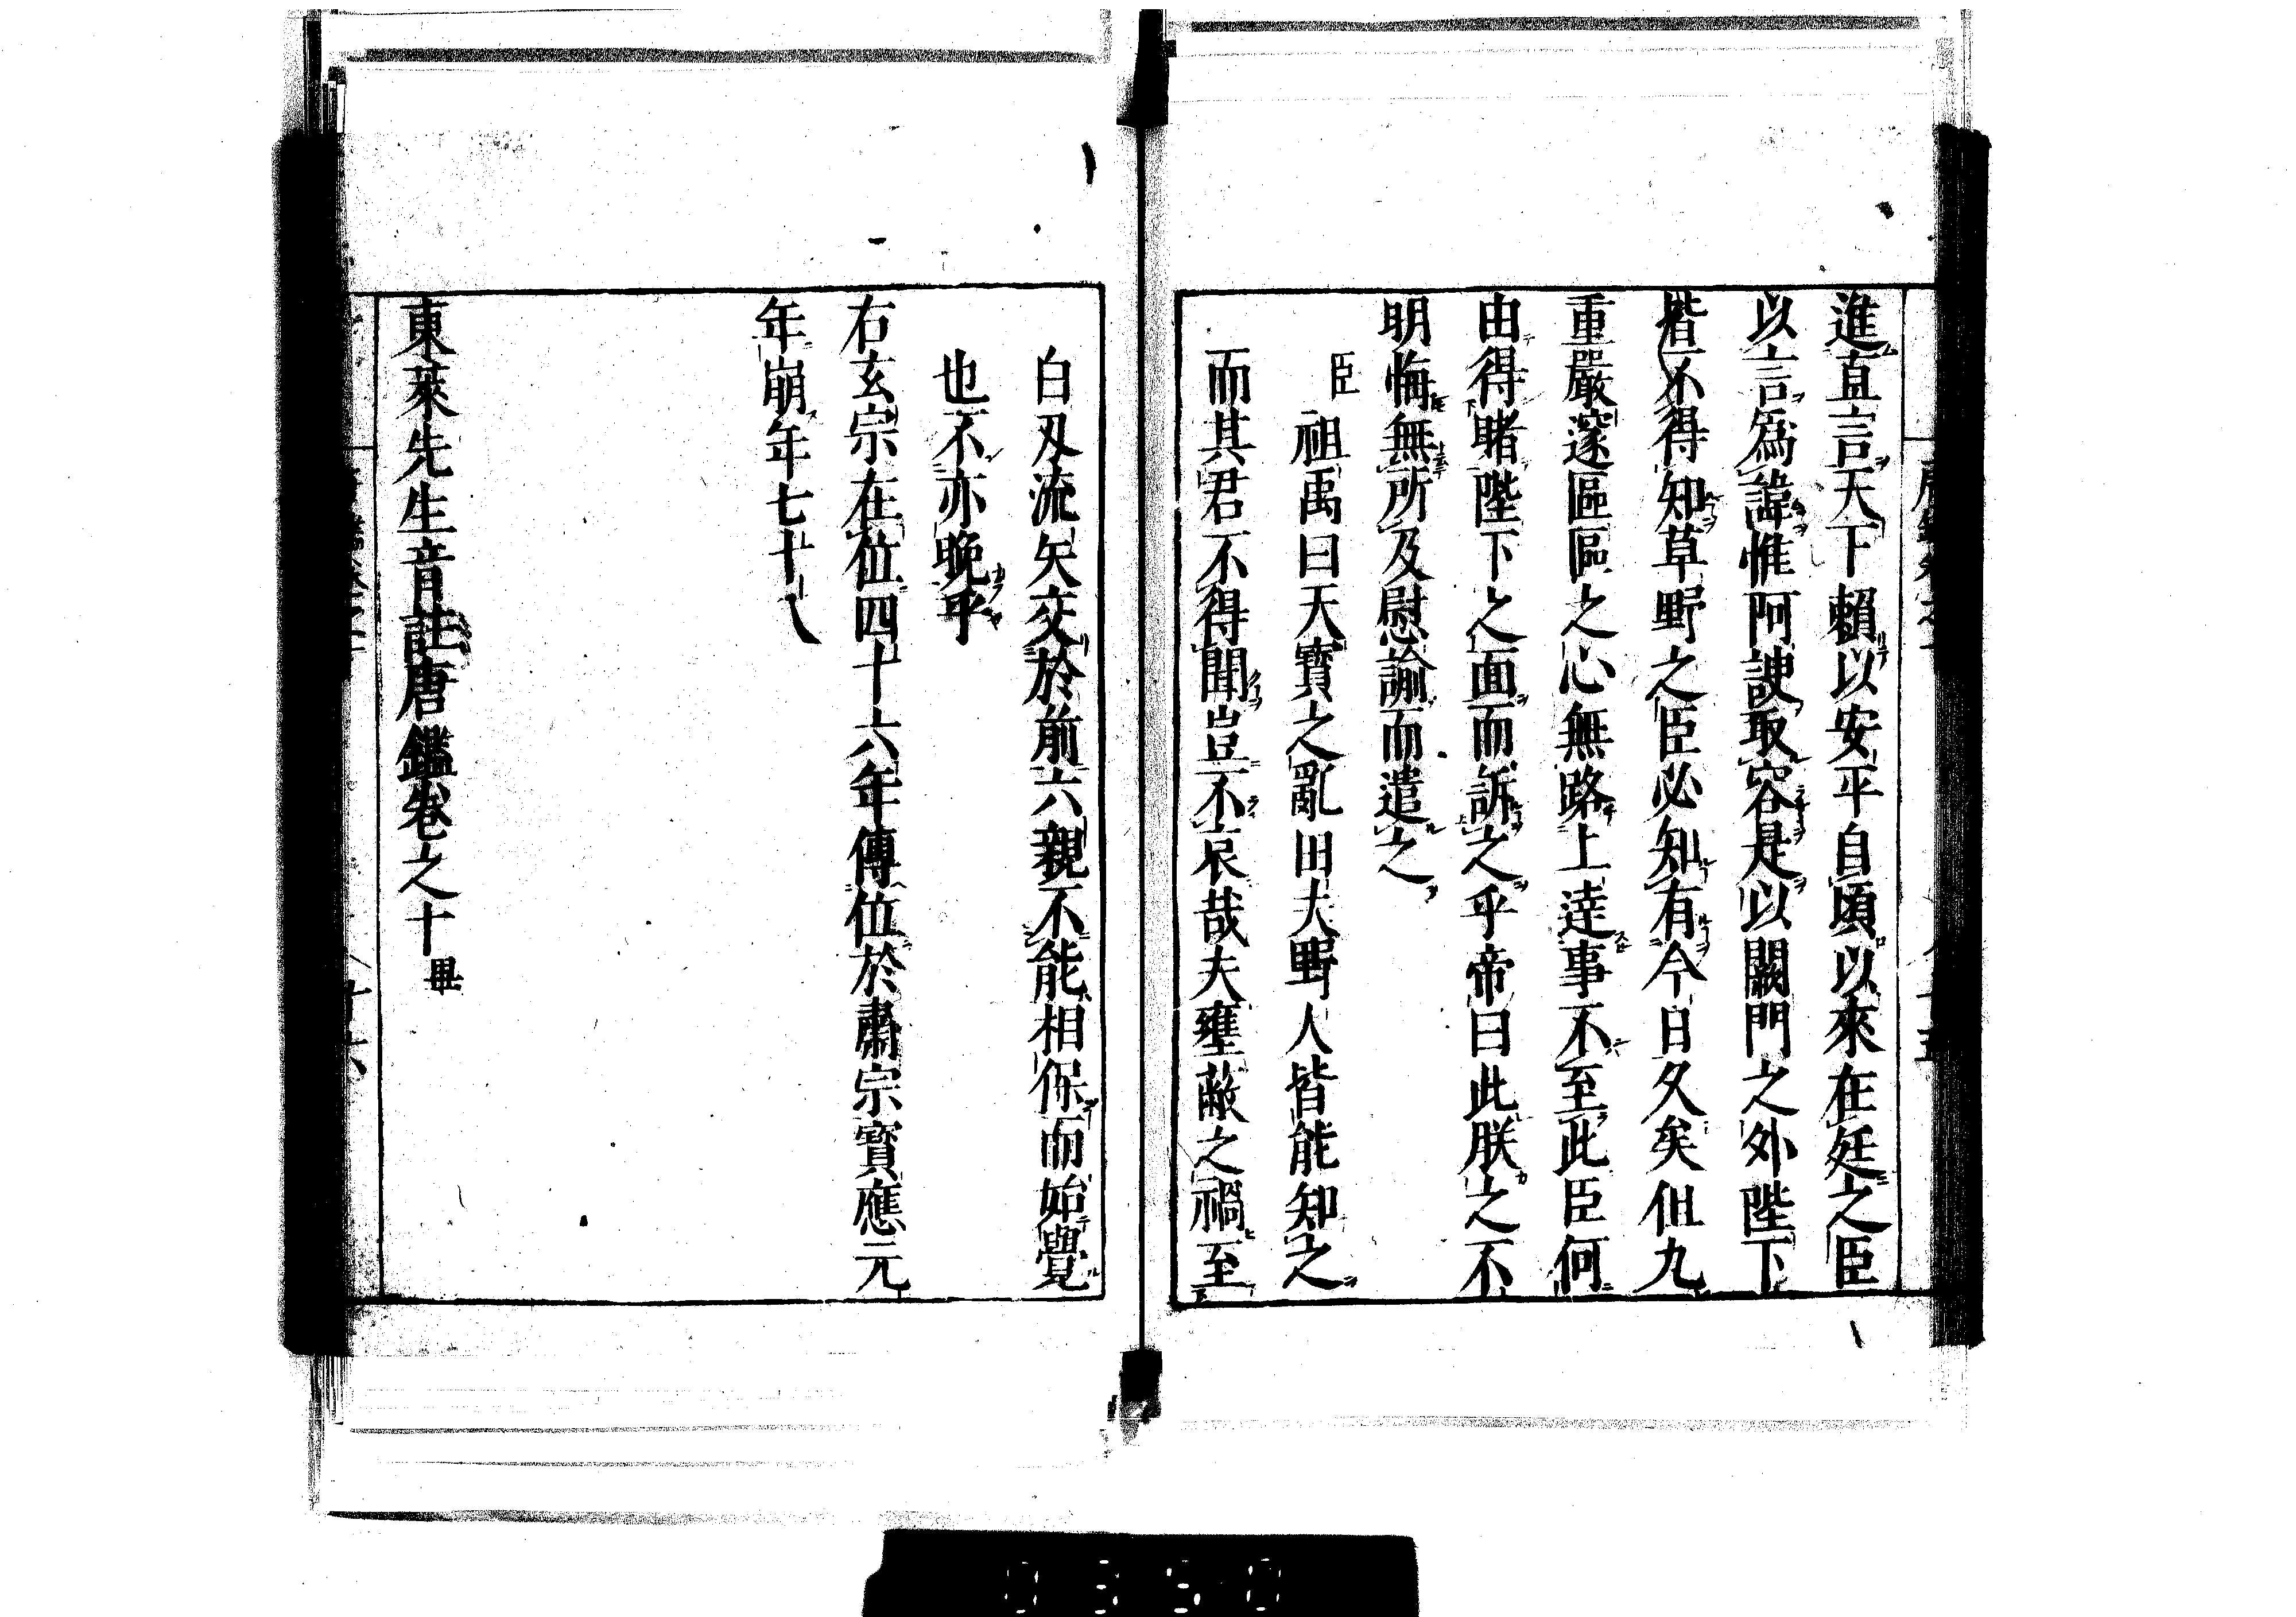 進直言天下賴以安平自頃以來在廷之臣
以言爲諱惟阿諛取容是以闕門之外陛下
皆不得知草野之臣必知有今日久矣但九
重嚴邃區區之心無路上達事不至此臣何
由得睹陛下之面而訴之乎帝曰此朕之不
明悔無所及慰諭而遣之
臣祖禹曰天寶之亂田夫野人皆能知之
而其君不得聞豈不哀哉夫壅蔽之禍至
白刄流矢交於前六親不能相保而始覺
也不亦晚乎
右玄宗在位四十六年傳位於肅宗寶應元
年崩年七十八
東萊先生音註唐鑑卷之十畢
0350